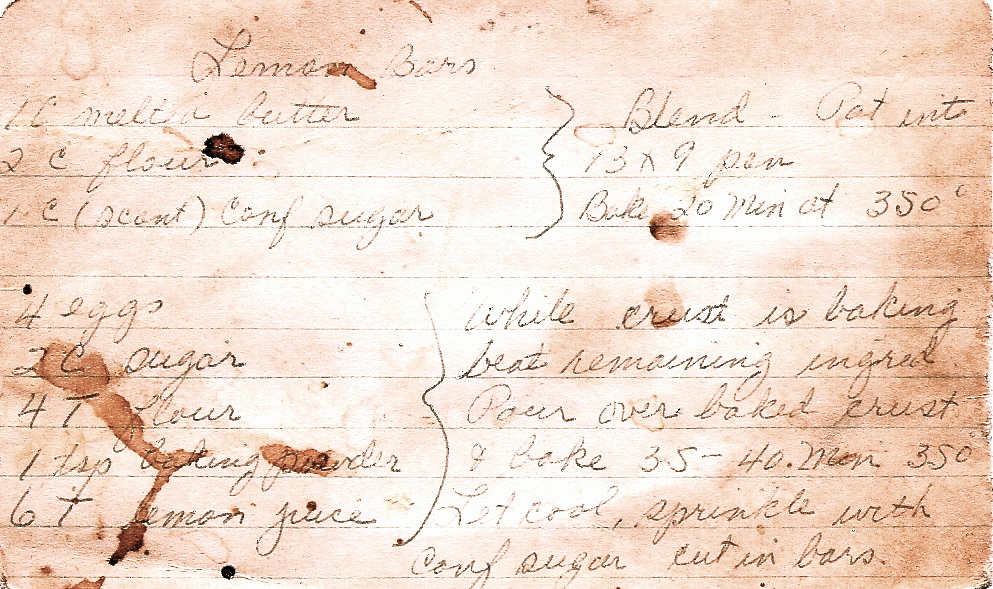 Lemon Bars
1 C melted butter
2 C flour
1 C (scant) Conf sugar
Blend - Pat into
13 x 9 pan
Bake 20 Min at 350°
4 eggs
2 C sugar
4 T flour
1 tsp baking powder
6 T lemon juice
While crust is baking
beat remaining ingred.
Pour over baked crust
& bake 35 - 40. Min 350
Let cool, sprinkle with
Conf sugar cut in bars.